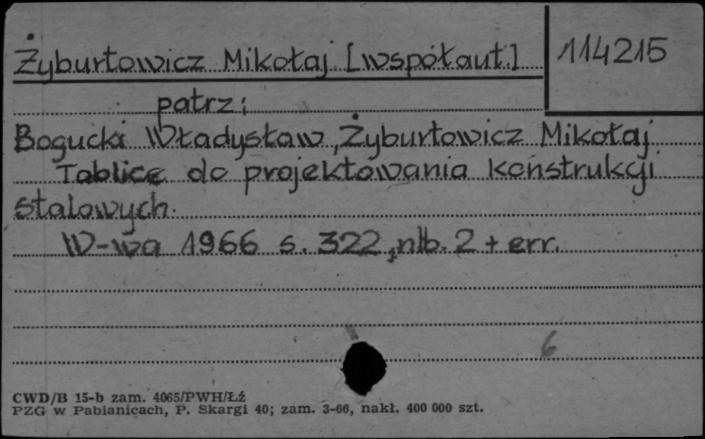 Żyburtowicz Mikołaj [współaut.] 114215
patrz:
Bogucki Władysław, Żyburtowicz Mikołaj
Tablice do projektowania konstrukcji
stalowych.
W-wa 1966 s. 322, nlb. 2 + err.
6
CWD/B 15-b zam. 4065/PWH/Łź
PZG w Pabianicach, P. Skargi 40; zam. 3-66, nakł. 400 000 szt.